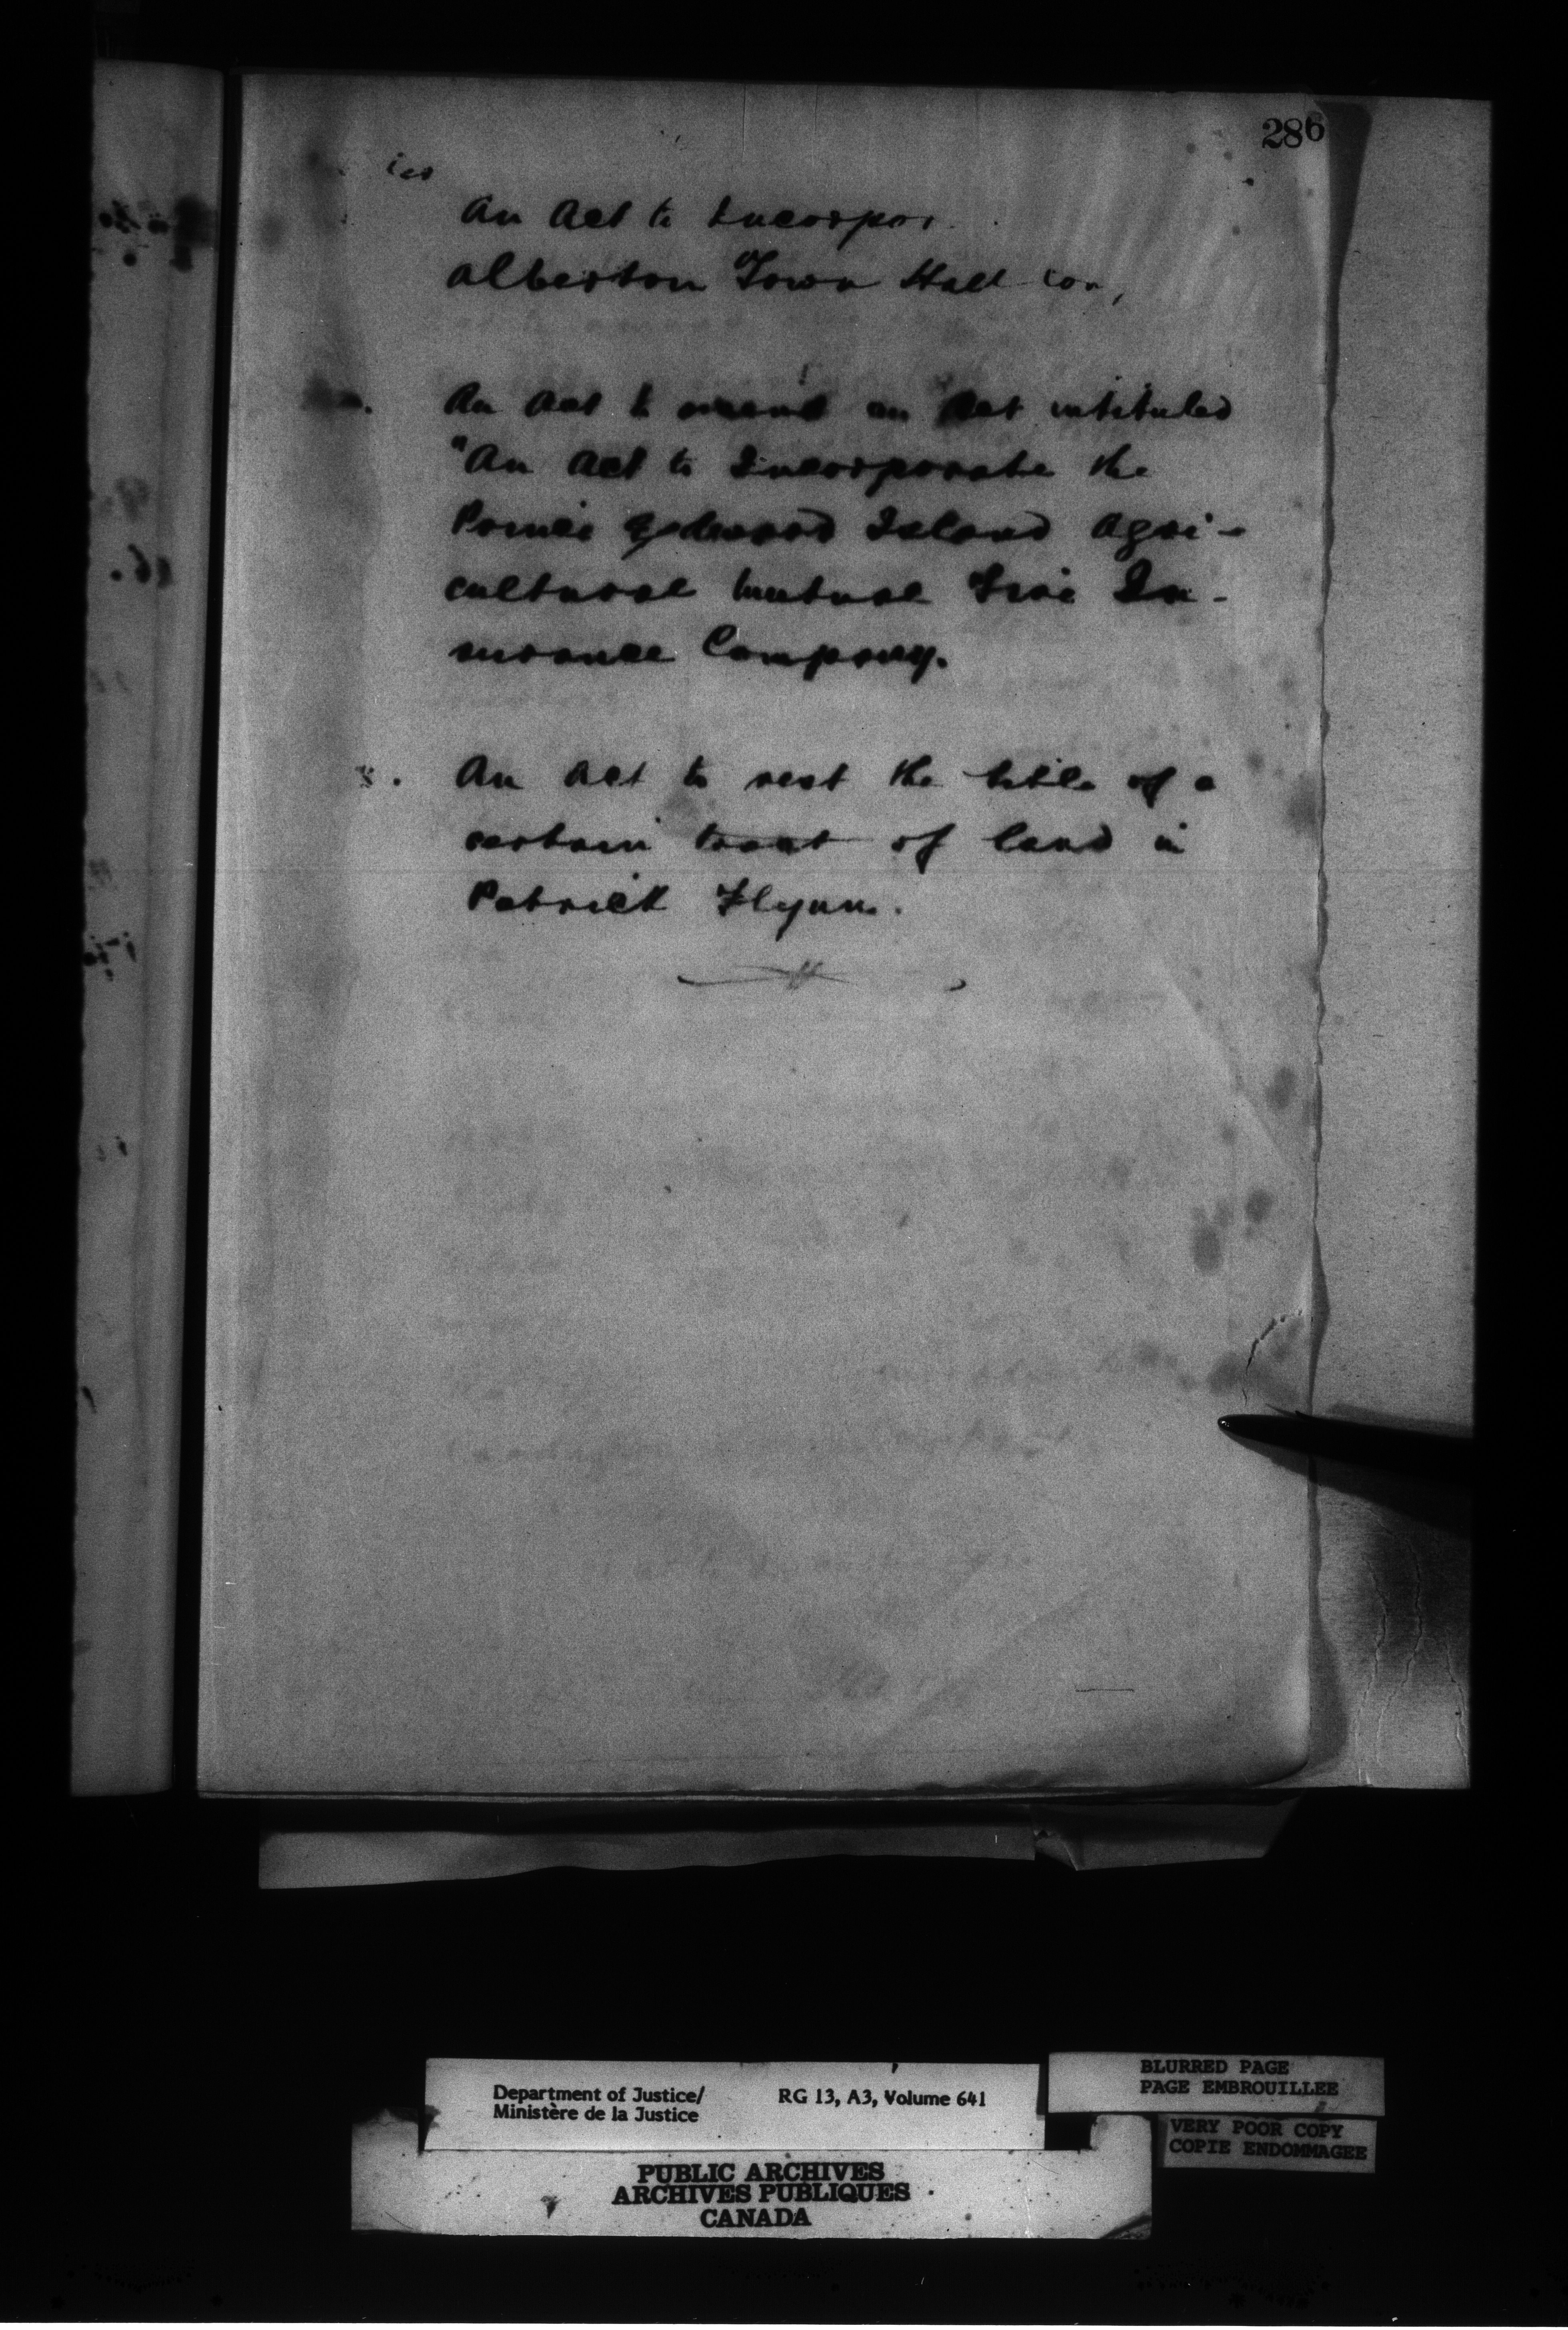 286
An Act to Incorpor
Alberton Town Hall Com,
An Act to amend an Act intituled
"An Act to Incorporate the
Prince Edward Island Agri-
cultural Mutual Fire In-
surance Company.
An Act to vest the title of a
certain tract of land in
Patrick Flynn.
Department of Justice/
Ministère de la Justice
RG 13, A3, Volume 641
BLURRED PAGE
PAGE EMBROUILLEE
VERY POOR COPY
COPIE ENDOMMAGEE
PUBLIC ARCHIVES
ARCHIVES PUBLIQUES
CANADA